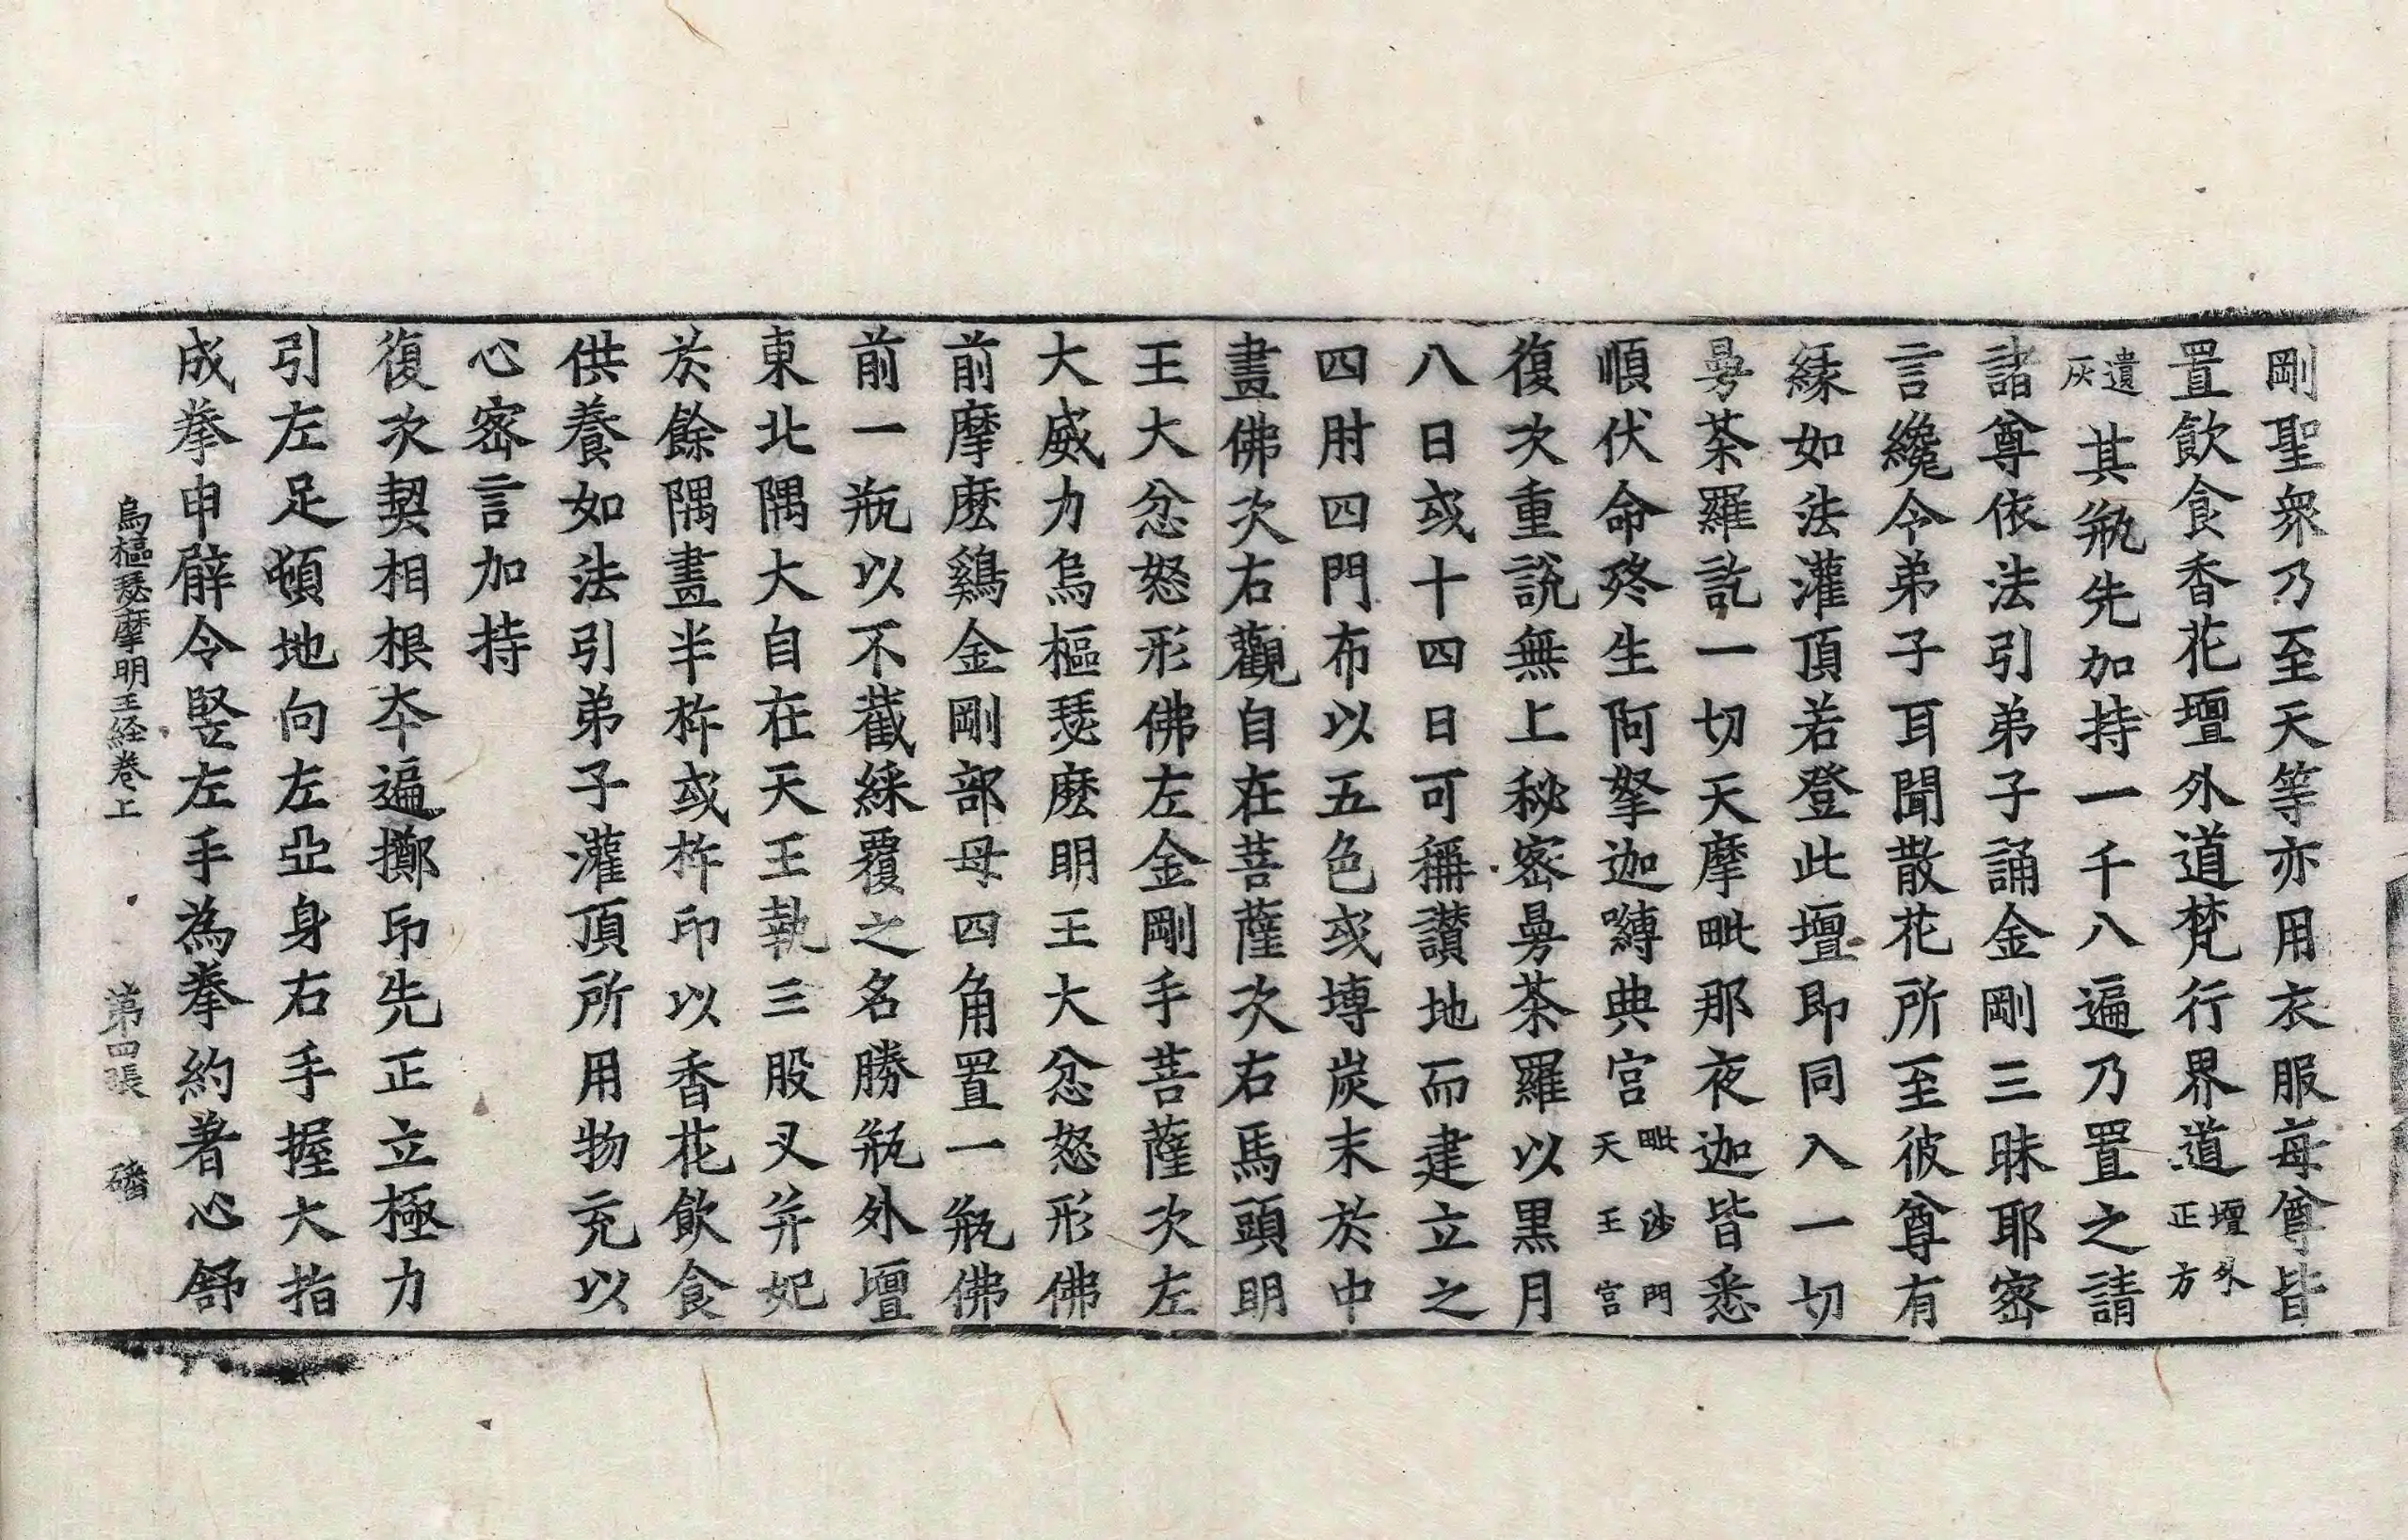 剛聖衆乃至天等亦用衣服每尊皆
置飲食香花壇外道梵行界道壇外正方
遺灰其瓶先加持一千八遍乃置之請
諸尊依法引弟子誦金剛三昧耶密
言纔令弟子耳聞散花所至彼尊有
緣如法灌頂若登此壇即同入一切
曼荼羅訖一切天摩毗那夜迦皆悉
順伏命終生阿拏迦嚩典宮毗沙門天王宮
復次重說無上秘密曼荼羅以黑月
八日或十四日可稱讚地而建立之
四肘四門布以五色或塼炭末於中
畫佛次右觀自在菩薩次右馬頭明
王大忿怒形佛左金剛手菩薩次左
大威力烏樞瑟麼明王大忿怒形佛
前摩麼鷄金剛部母四角置一瓶佛
前一瓶以不截綵覆之名勝瓶外壇
東北隅大自在天王執三股叉并妃
於餘隅畫半杵或杵印以香花飲食
供養如法引弟子灌頂所用物充以
心密言加持
復次契相根本遍擲印先正立極力
引左足頓地向左亞身右手握大指
成拳申臂令竪左手為拳約著心舒
烏樞瑟摩明王経卷上　第四張　磻